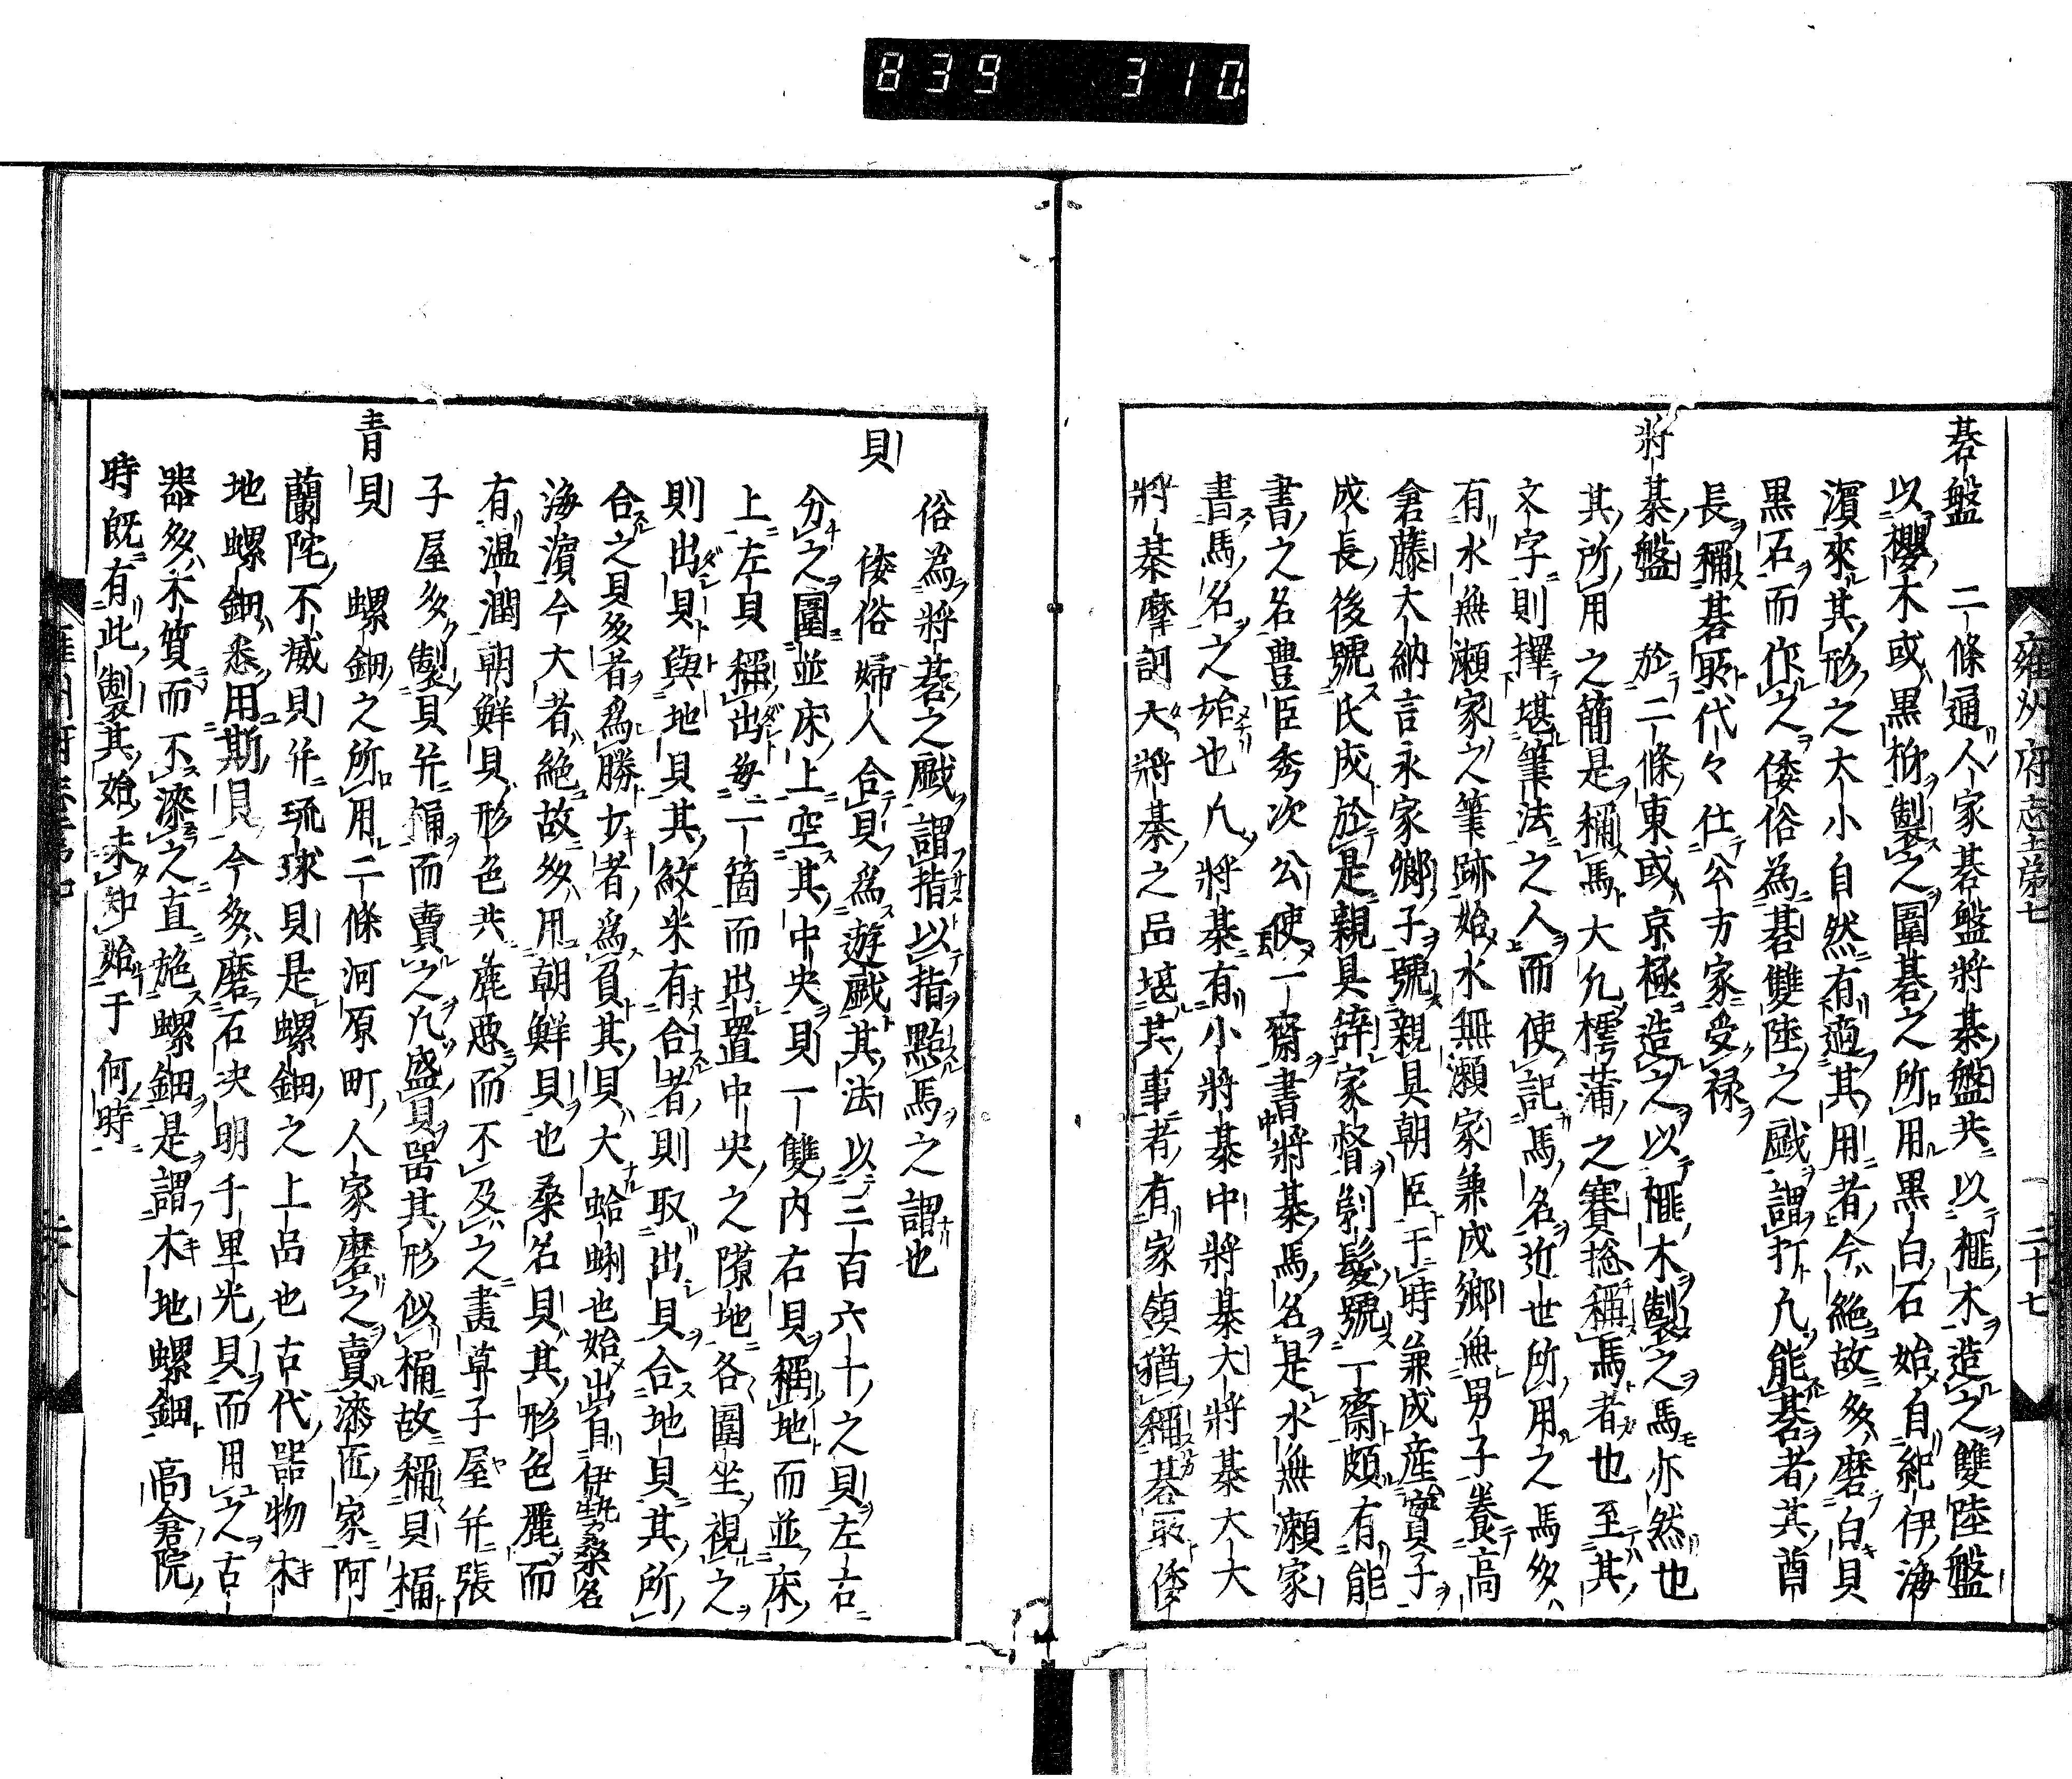 839 310
雍州府志 第七
二十七
碁盤 二條通人家碁盤將棊盤共以榧木造之雙陸盤
以櫻木或黒柹製之圍碁之所用黒白石始自紀伊海
濵來其形之大小自然有適其用者今絶故多磨白貝
黒石而作之倭俗為碁雙陸之戯謂打凢能碁者其酋
長稱碁所代々仕公方家受禄
將棊盤 於二條東或京極造之以榧木製之馬亦然也
其所用之簡是稱馬大凢樗蒲之賽揔稱馬者也至其
文字則擇堪筆法之人而使記馬名近世所用之馬多
有水無瀬家之筆跡始水無瀬家兼成郷無男子養高
倉藤大納言永家郷子號親具朝臣于時兼成産實子
成長後號氏成於是親具辞家督剃髮號一齋頗有能
書之名豊臣秀次公使一齋書將棊馬名是水無瀬家
書馬名之始也凢將棊有小將棊中將棊大將棊大大
將棊摩訶大將棊之品堪其事者有家領猶稱碁所倭
俗為將碁之戯謂指以指點馬之謂也
貝 倭俗婦人合貝爲遊戯其法以三百六十之貝左右
分之圍並床上空其中央貝一雙内右貝稱地而並床
上左貝稱出毎一箇而出置中央之隙地各圍坐視之
則出貝與地貝其紋米有合者則取出貝合地貝其所
合之貝多者爲勝少者爲負其貝大蛤蜊也始出自伊勢桑名
海濵今大者絶故多用朝鮮貝也桑名貝其形色麗而
有温潤朝鮮貝形色共麁悪而不及之畫草子屋并張
子屋多製貝并桶而賣之凢盛貝噐其形似桶故稱貝桶
青貝 螺鈿之所用二條河原町人家磨之賣漆匠家阿
蘭陀不減貝并琉球貝是螺鈿之上品也古代噐物木
地螺鈿悉用斯貝今多磨石决明千里光貝而用之古
器多木質而不漆之直施螺鈿是謂木地螺鈿高倉院
時既有此製其始未知始于何時